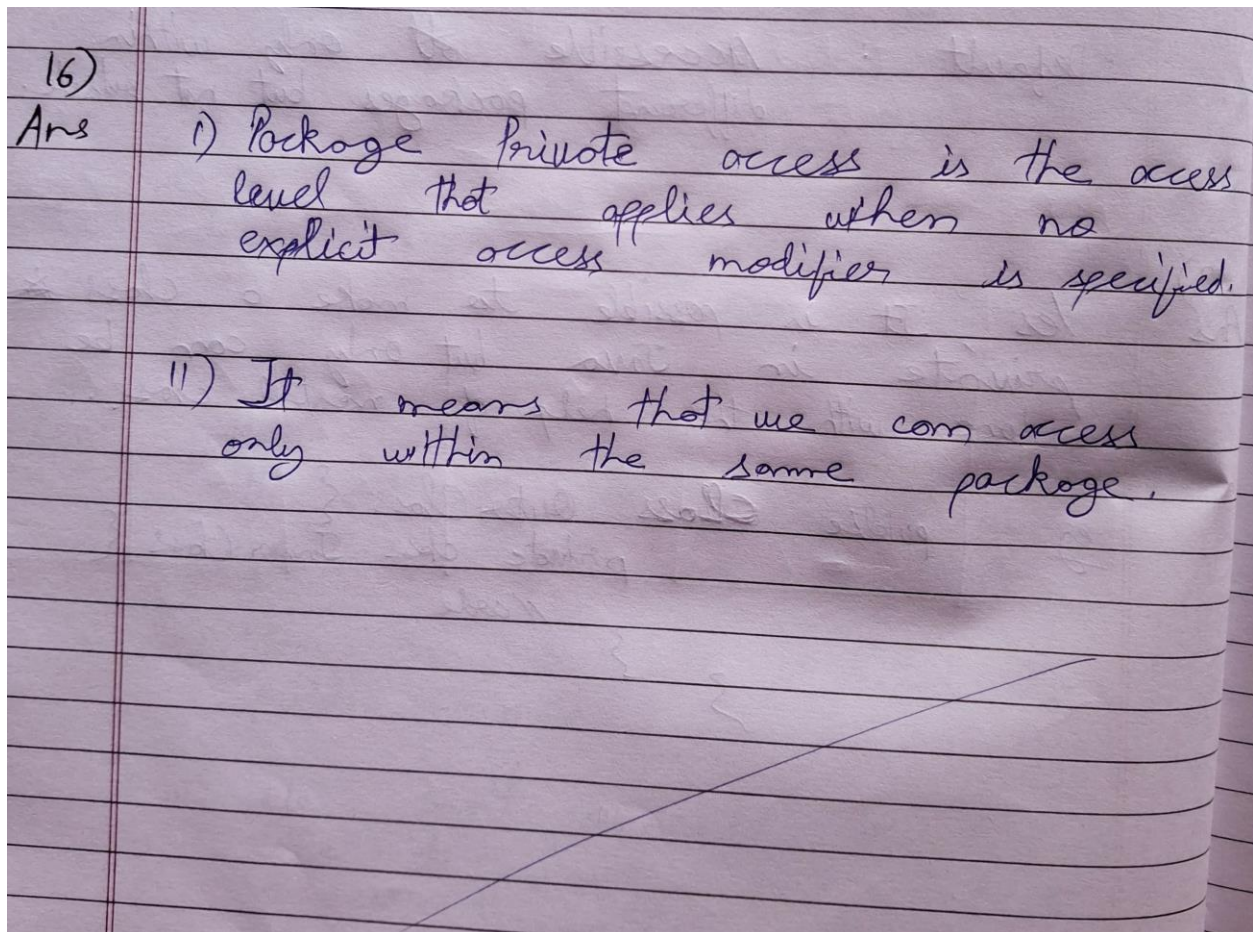 16)
Ans i) Package Private access is the access
level that applies when no
explicit access modifier is specified.
ii) It means that we can access
only within the same package.